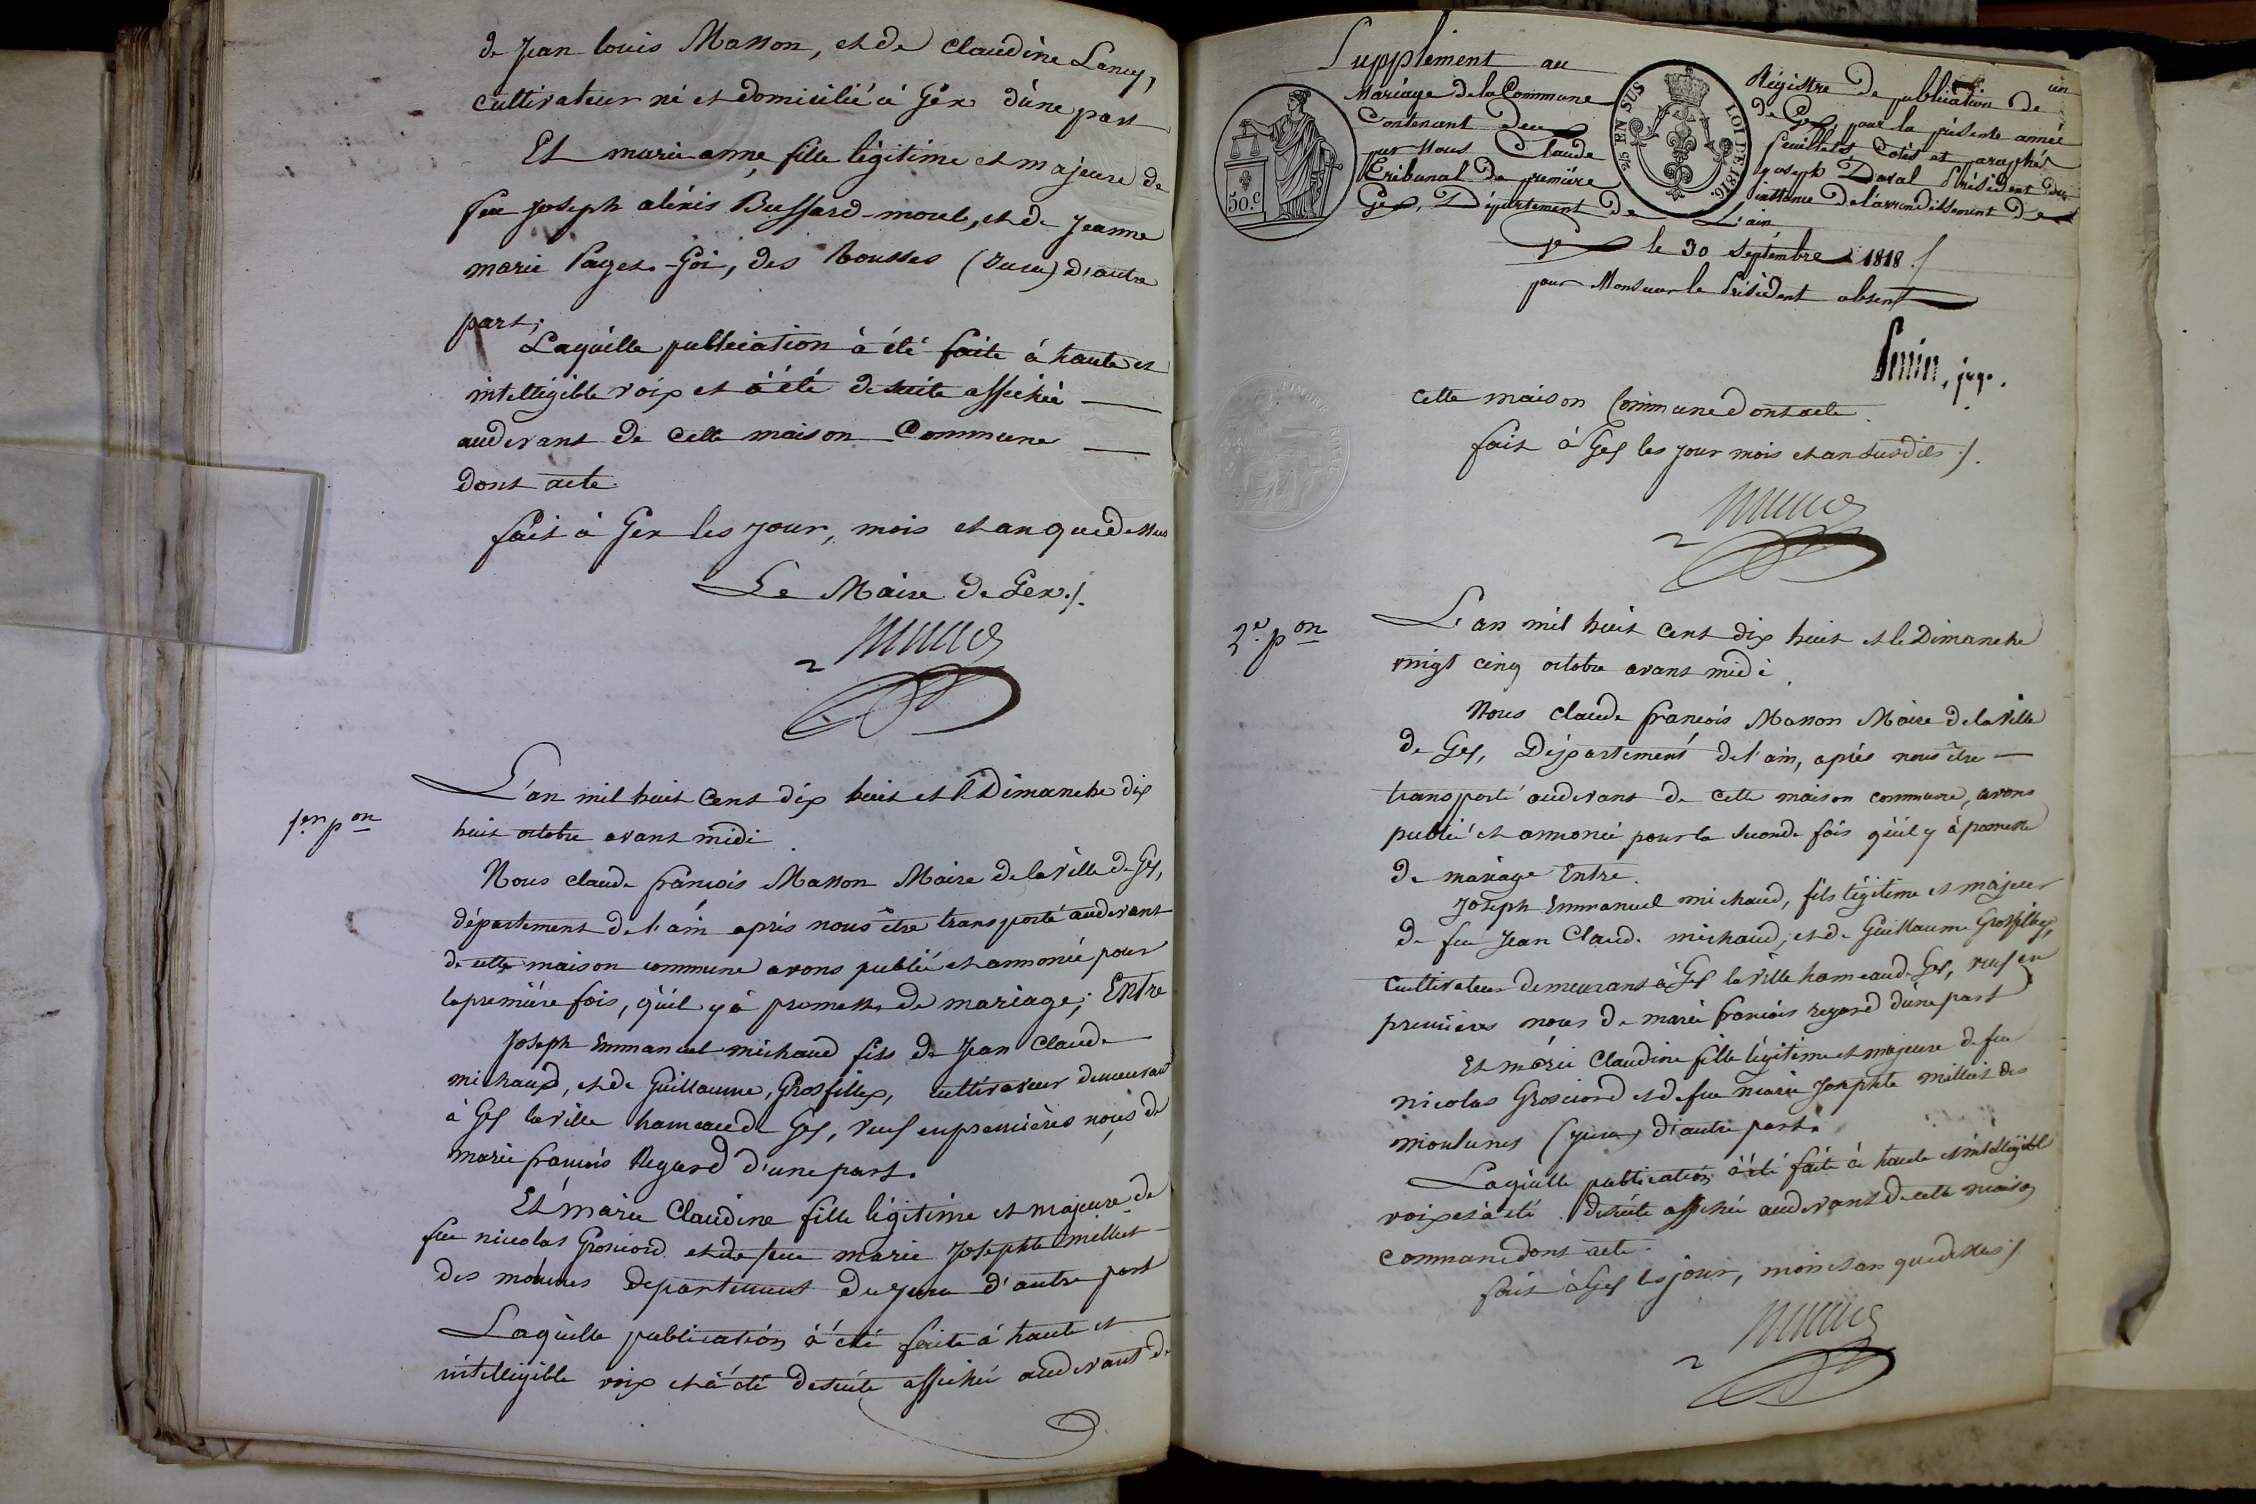 de Jean louis Masson, et de Claudine Lancy,
cultivateur né et domicilié à Gex d'une part
Et marie anne, fille légitime et majeure de
feu joseph aléxis Buffard-morel, et de Jeanne
marie Paget-Goi, des Rousses (Jura) d'autre
part;
Laquelle publication à été faite à haute et
intelligible voix et à été de suite affichée
audevant de cette maison Commune
dont acte.
fait à Gex les jour, mois et an que dessus
Le Maire de Gex ./.
1ere pon
L'an mil huit Cent dix huit et le Dimanche dix
huit octobre avant midi
Nous claude françois Masson Maire de la ville de Gex,
département de l'ain après nous être transporté audevant
de cette maison commune avons publié et annoncé pour
la première fois, qu'il y à promesse de mariage; Entre
Joseph Emmanuel michaud fils de Jean Claude
michaud, et de Guillaume, Grosfillex, cultivateur demeurant
à Gex la ville hameau de Gex, veuf en premières noçes de
marie françois Regard d'une part.
Et marie Claudine fille légitime et majeure de
feu nicolas Grosriord et de feue marie Josephte millet
des moulunes département du jura d'autre part
Laquelle publication à été faite à haute et
intelligible voix et à été desuite affichée audevant de
Supplément au Régistre de publication de
Mariage de la Commune de Gex pour la présente année
Contenant deux feuillets Cotés et paraphés
par Nous Claude joseph Daval Président du
Tribunal de première instance de l'arrondissement de
Gex, Département de L'ain
Gex le 30 Septembre 1818 ./
pour Monsieur le Président absent
50.C
25 EN SUS LOI DE 1816.
TIMBRE ROYAL
juge.
cette maison Commune dont acte.
fait à Gex les jour mois et an susdits ./.
2e. pon
L'an mil huit Cent dix huit et le Dimanche
vingt cinq octobre avant midi
Nous claude françois Masson Maire de la ville
de Gex, Département de l'ain, après nous être
transporté audevant de cette maison commune, avons
publié et annoncé pour la seconde fois qu'il y à promesse
de mariage Entre.
Joseph Emmanuel michaud, fils légitime et majeur
de feu Jean Claude michaud, et de Guillaume Grosfillex,
cultivateur demeurant à Gex la ville hameau de Gex, veuf en
premières noces de marie françois regard d'une part
Et marie Claudine fille légitime et majeure de feu
nicolas Grosriord et de feue marie Josephte millet des
moulunes (jura) d'autre part.
Laquelle publication à été faite à haute et intelligible
voix et à été desuite affichée audevant de cette maison
commune dont acte.
fait à Gex les jour, mois et an que dessus ./